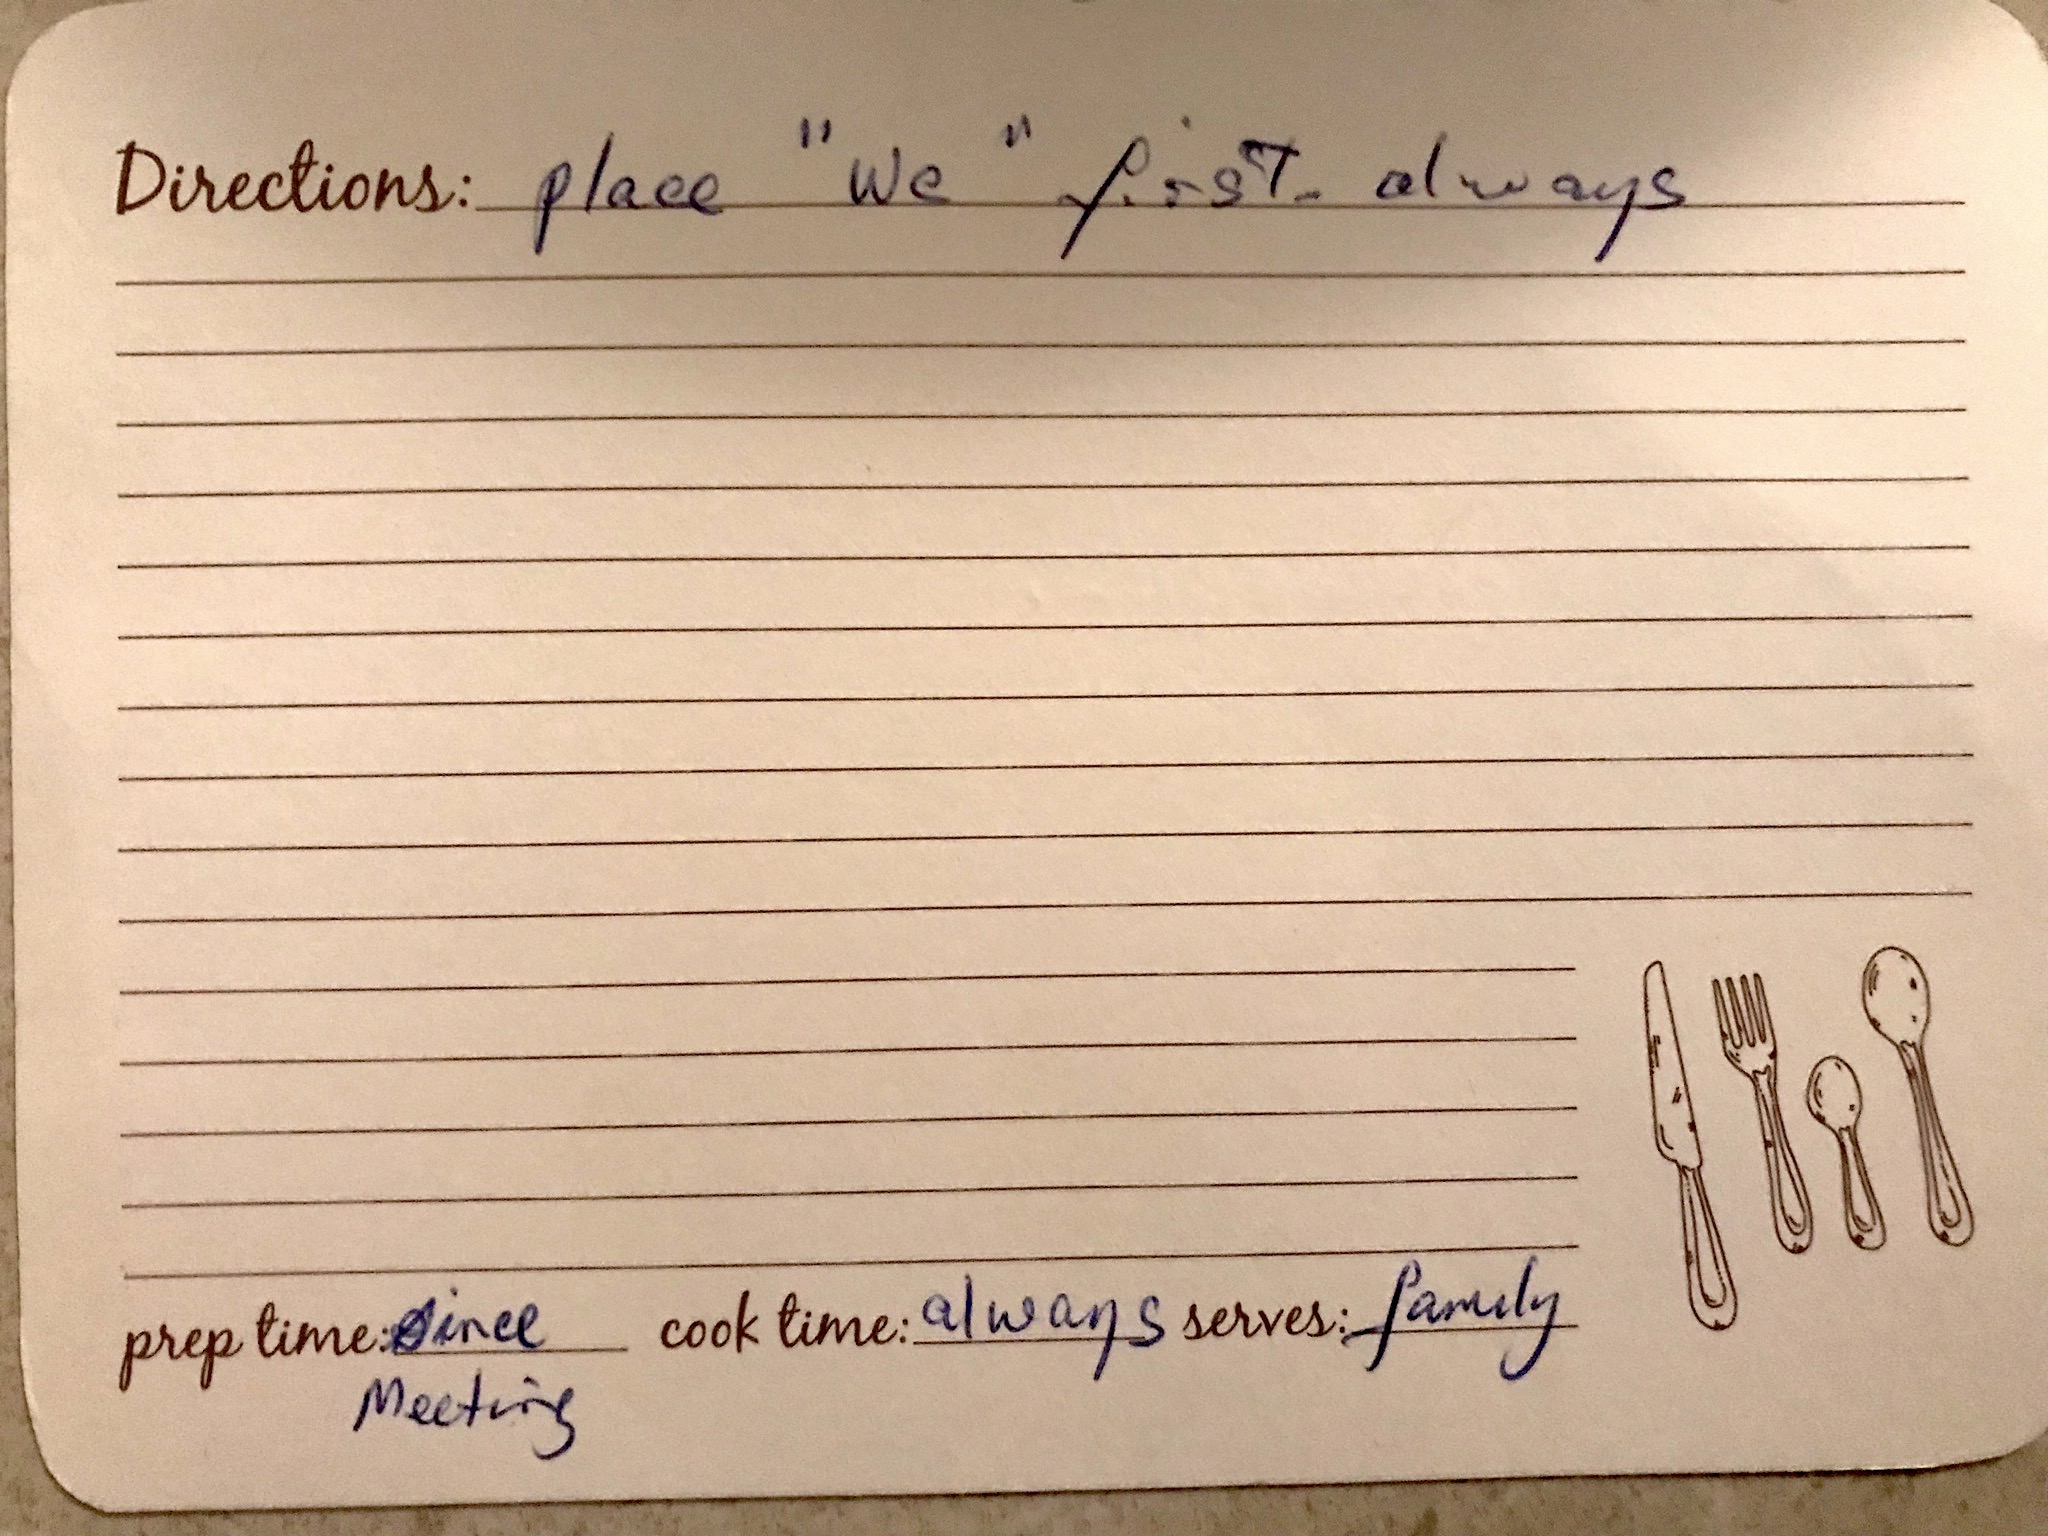 Directions: place "We" first always
prep time: since cook time: always serves: family
Meeting